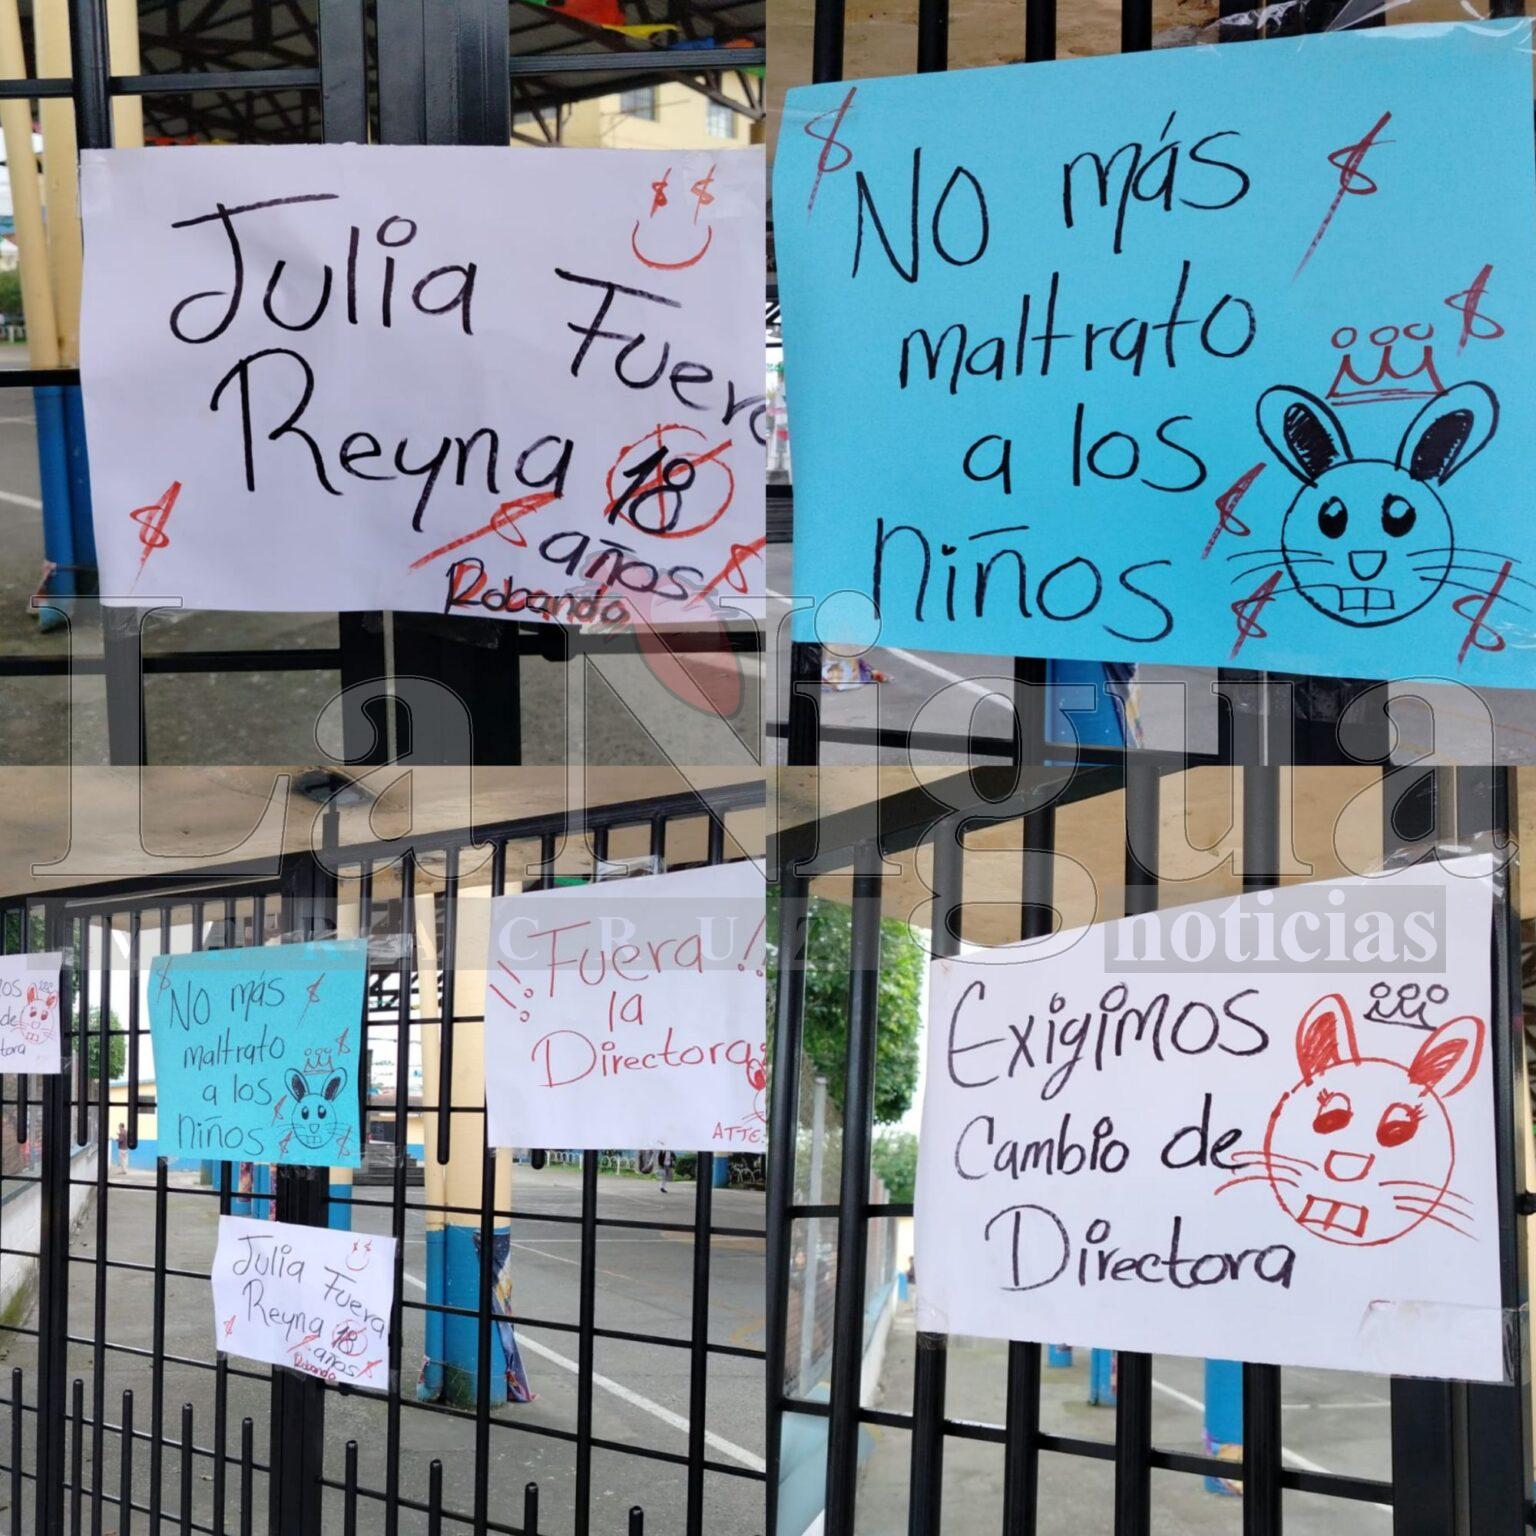 Julia
Fuera
Reyna 18
años
Robando
NO más
maltrato
a los
niños
LaNigua
VERACRUZ
noticias
de
NO más
maltrato
a los
niños
¡¡Fuera!!
la
Directora
ATTE:
Julia
Fuera
Reyna 18
años
Robando
Exigimos
Cambio de
Directora